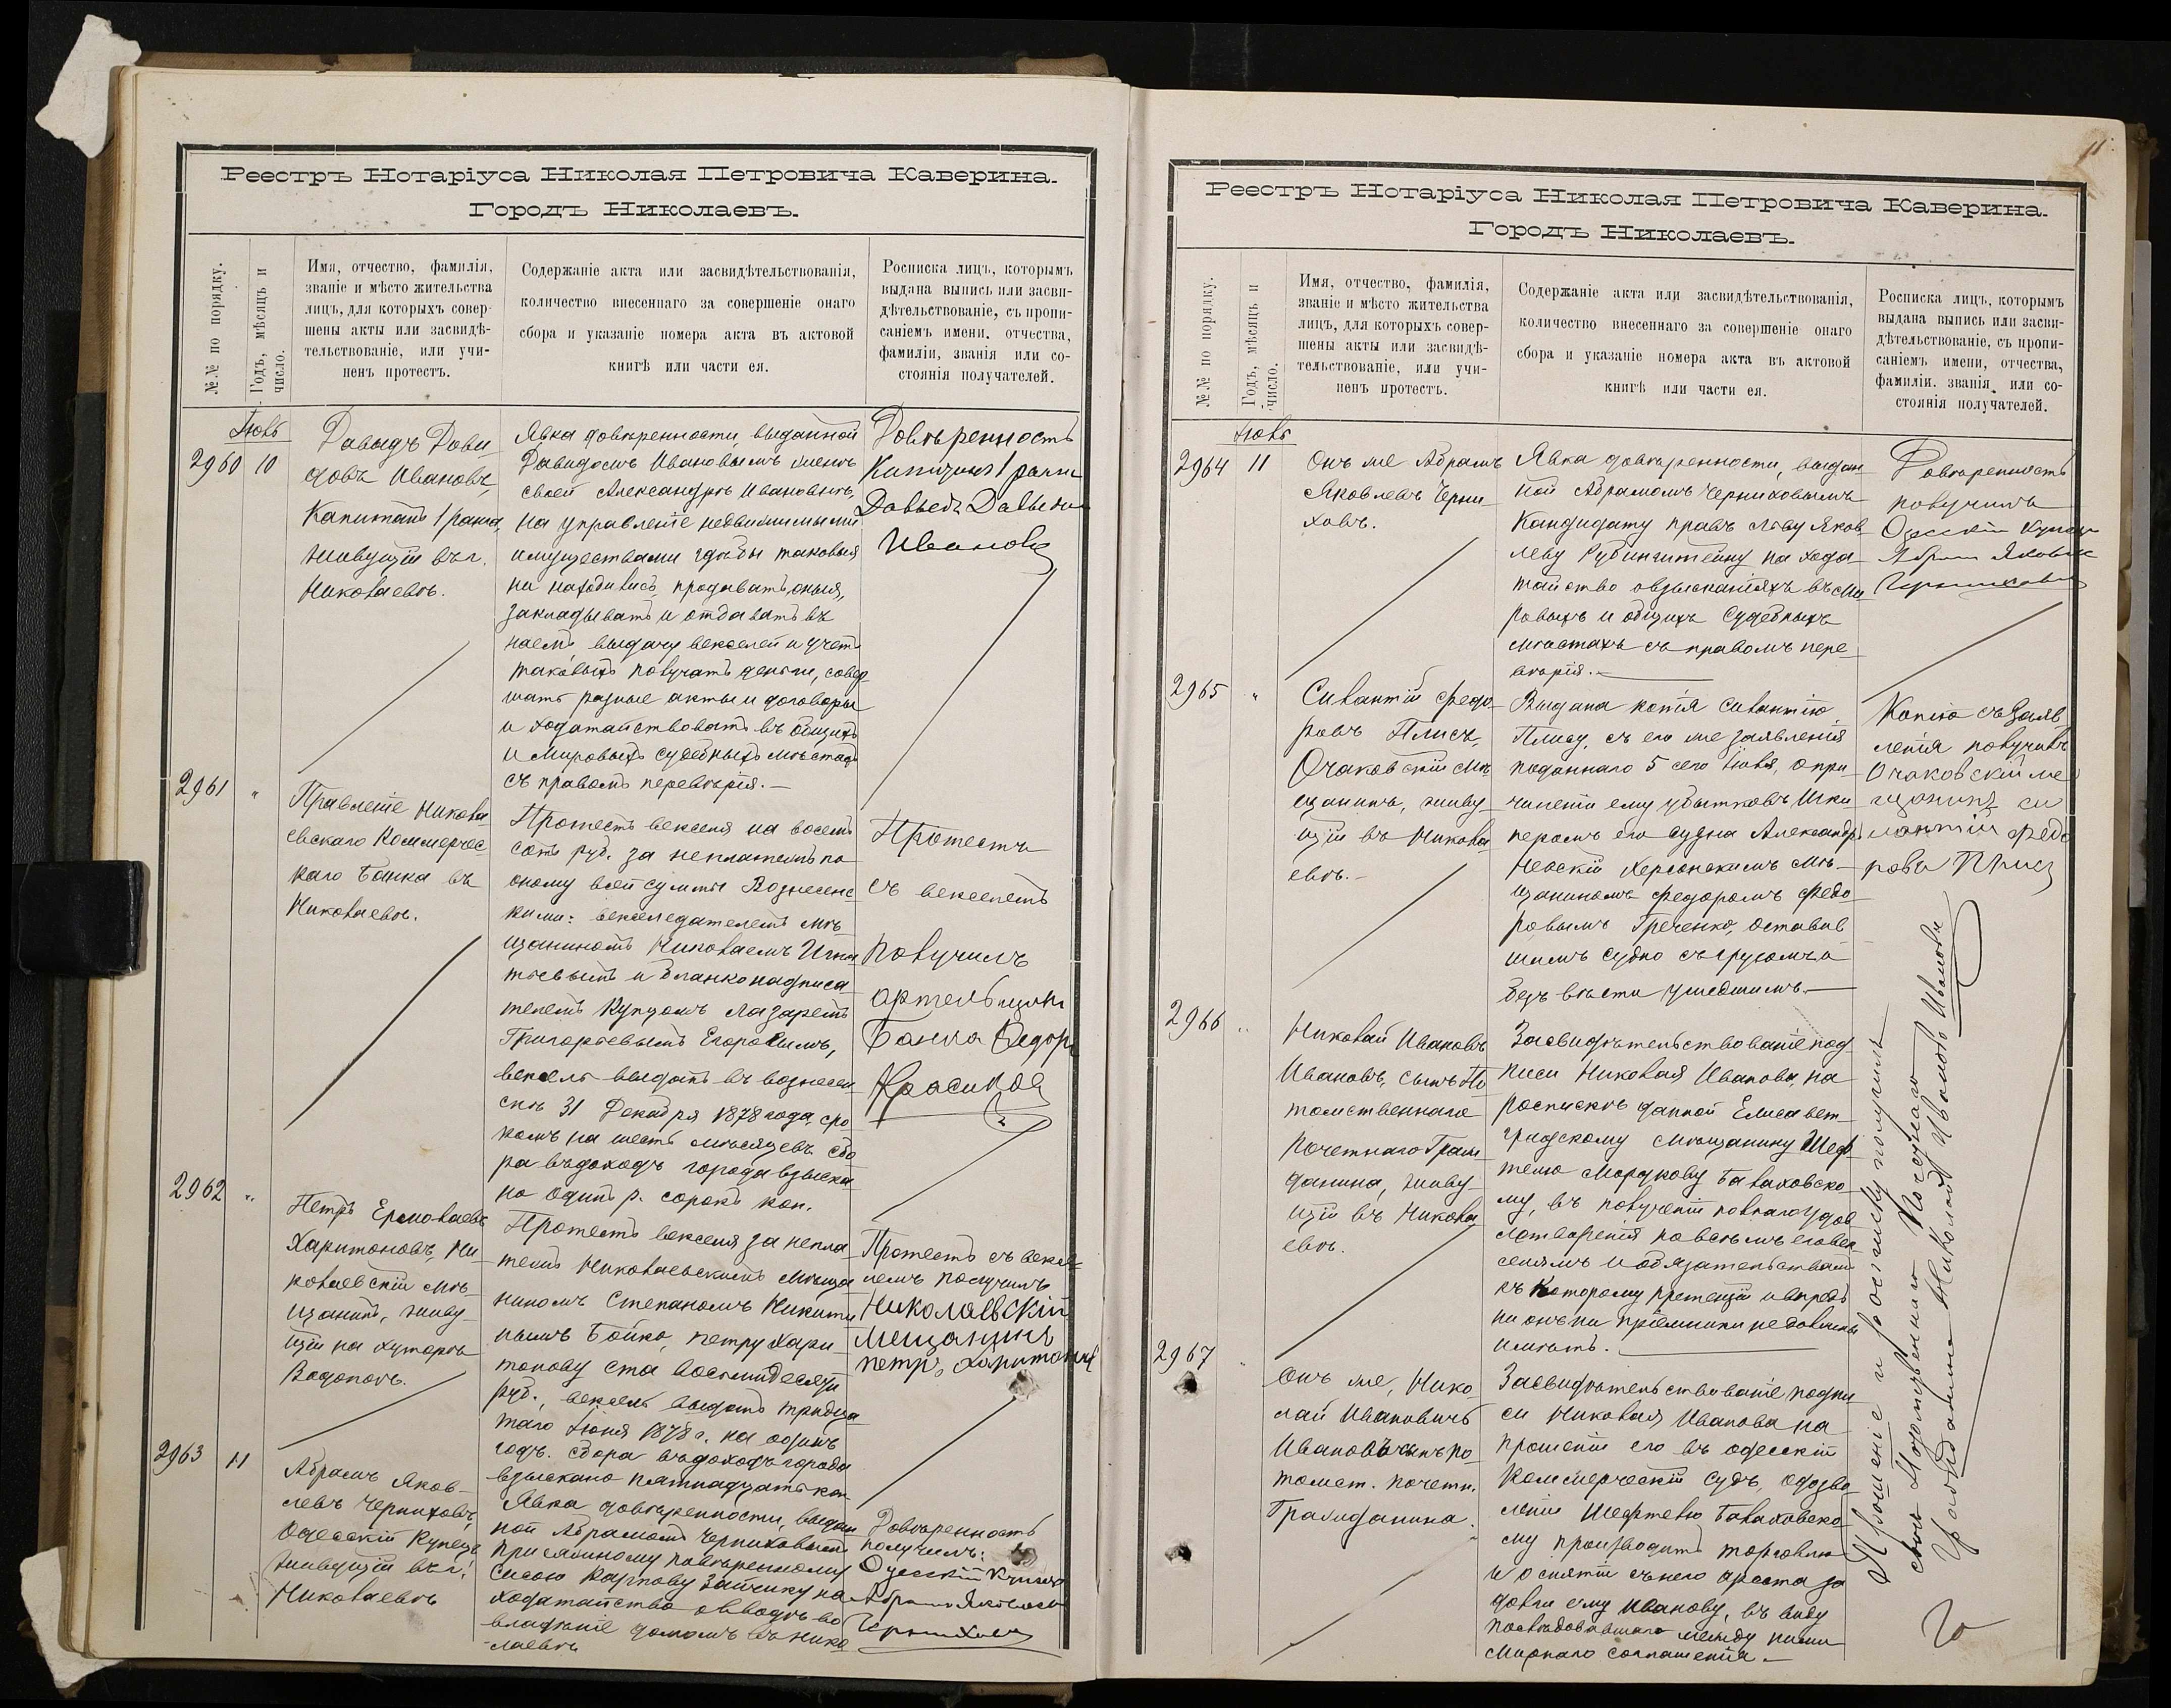 Реестръ Нотаріуса Николая Петровича Каверина.
Городъ Николаевъ.
№.№ по порядку.
Годъ, мѣсяцъ и
число.
Имя, отчество, фамилія,
званіе и мѣсто жительства
лицъ, для которыхъ совер-
шены акты или засвидѣ-
тельствованіе, или учи-
ненъ протестъ.
Содержаніе акта или засвидѣтельствованія,
количество внесеннаго за совершеніе онаго
сбора и указаніе номера акта въ актовой
книгѣ или части ея.
Росписка лицъ, которымъ
выдана выпись или засви-
дѣтельствованіе, съ пропи-
саніемъ имени, отчества,
фамиліи, званія или со-
стоянія получателей.
Іюль
2960 10
Давыдъ Дави
довъ Ивановъ,
Капитанъ 1 ранга,
живущій въ г.
Николаевѣ.
Явка довѣренности, выданной
Давидомъ Ивановымъ женѣ
своей Александрѣ Ивановнѣ,
на управленіе недвижимыми
имуществами гдѣ бы таковыя
ни находились, продавать оныя,
закладывать и отдавать въ
наемъ, выдачу векселей и учетъ
таковыхъ получать деньги, совер
шать разные акты и договоры
и ходатайствовать въ общихъ
и Мировыхъ судебныхъ мѣстахъ
съ правомъ перевѣрія.—
Довѣренность
Капитанъ 1 ранга
Давыдъ Давыдов
Ивановъ
2961 "
Правленіе Никола
евскаго Коммерчес
каго Банка въ
Николаевѣ.
Протестъ векселя на восемь
сотъ руб. за неплатежъ по
оному всей суммы Вознесенс
кими: векселедателемъ мѣ
щаниномъ Николаемъ Игна
тьевымъ и бланконадписа
телемъ Купцомъ Лазаремъ
Григорьевымъ Егоровымъ,
вексель выданъ въ Вознесен
скѣ 31 Декабря 1878 года, сро
комъ на шесть мѣсяцевъ. Сбо
ра въ доходъ города взыска
но одинъ р. сорокъ коп.
Протестъ
съ векселемъ
получилъ
артельщикъ
Банка Федоръ
2962 "
Петръ Ермолаевъ
Харитоновъ, Ни
колаевскій мѣ
щанинъ, живу
щій на хуторѣ
Водопоѣ.
Протестъ векселя за непла
тежъ Николаевскимъ мѣща
ниномъ Степаномъ Никити
нымъ Бойко, Петру Хари
тонову ста восьмидесяти
руб., вексель выданъ тридца
таго Іюня 1878 г. на одинъ
годъ. Сбора въ доходъ города
взыскано пятнадцать коп.
Протестъ съ вексе
лемъ получилъ
Николаевскій
Мещанинъ
петръ Харитоновъ
2963 11
Абрамъ Яков
левъ Черниховъ,
Одесскій Купецъ
живущій въ г.
Николаевѣ
Явка довѣренности, выдан
ной Абрамомъ Черниховымъ
присяжному повѣренному
Сисою Карпову Зайчику на
ходатайство о вводѣ во
владѣніе домомъ въ Нико
лаевѣ
Довѣренность
получилъ:
Одесскій Купецъ
Абрамъ Яковлевъ
Черниховъ
11
Реестръ Нотаріуса Николая Петровича Каверина.
Городъ Николаевъ.
№.№ по порядку.
Годъ, мѣсяцъ и
число.
Имя, отчество, фамилія,
званіе и мѣсто жительства
лицъ, для которыхъ совер-
шены акты или засвидѣ-
тельствованіе, или учи-
ненъ протестъ.
Содержаніе акта или засвидѣтельствованія,
количество внесеннаго за совершеніе онаго
сбора и указаніе номера акта въ актовой
книгѣ или части ея.
Росписка лицъ, которымъ
выдана выпись или засви-
дѣтельствованіе, съ пропи-
саніемъ имени, отчества,
фамиліи. званія или со-
стоянія получателей.
Іюль
2964 11
Онъ же Абрамъ
Яковлевъ Черни
ховъ.
Явка довѣренности, выдан
ной Абрамомъ Черниховымъ
Кандидату правъ Льву Яков
леву Рубинштейну на хода
тайство о взысканіяхъ въ ми
ровыхъ и общихъ судебныхъ
мѣстахъ съ правомъ пере
вѣрія.—
Довѣренность
получилъ
Одесскій Купецъ
Абрам Яковлев
Черниховъ
2965 "
Силантій Федо
ровъ Плисъ,
Очаковскій мѣ
щанинъ, живу
щій въ Никола
евѣ.—
Выдана копія Силантію
Плису, съ его же заявленія
поданнаго 5 сего Іюля, о при
чиненіи ему убытковъ Шки
перомъ его судна Александръ
Невскій Херсонскимъ мѣ
щаниномъ Федоромъ Федо
ровымъ Греченко, оставив
шимъ судно съ грузомъ и
безъ вѣсти ушедшимъ.—
Копію съ Заяв
ленія получилъ
Очаковскій ме
щанинъ си
лантій федо
ровъ Плисъ
2966 "
Николай Ивановъ
Ивановъ, сынъ По
томственнаго
Почетнаго Граж
данина, живу
щій въ Никола
евѣ.
Засвидѣтельствованіе под
писи Николая Иванова, на
роспискѣ данной Елисавет
градскому мѣщанину Шеф
телю Мордкову Балаховско
му, въ полученіи полнаго удов
летворенія по всѣмъ его век
селямъ и обязательствамъ
къ Которому претензій впредь
ни онъ ни преемники не должны
имѣть.
2967 "
Онъ же, Нико
лай Ивановичъ
Ивановъ сынъ по
томст. почетн.
Гражданина.
Засвидѣтельствованіе подпи
си Николая Иванова на
прошеніи его въ Одесскій
Коммерческій судъ, о дозво
леніи Шефтелю Балаховско
му производить торговлю
и о снятіи съ него ареста за
долги ему Иванову, въ виду
послѣдовавшаго между ними
Мирнаго соглашенія.—
Прошеніе и росписку получилъ
сынъ Потомственнаго Почетнаго
Гражданина Николай Ивановъ Ивановъ